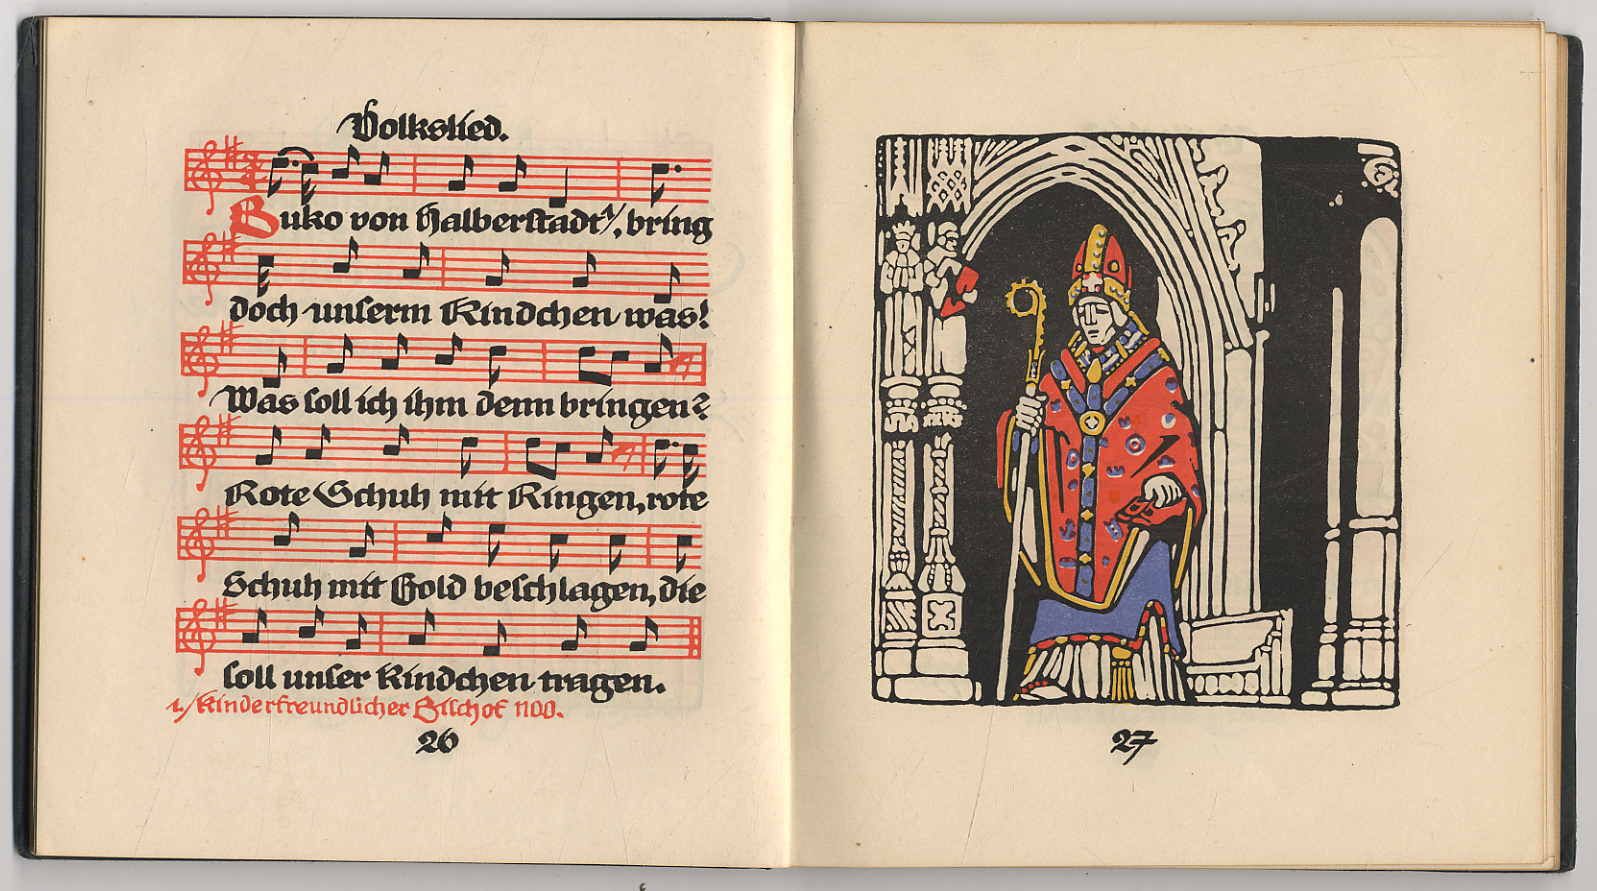 Volkslied.
Buko von Halberstadt¹/, bring
doch unserm Kindchen was!
Was soll ich ihm denn bringen?
Rote Schuh mit Ringen, rote
Schuh mit Gold beschlagen, die
soll unser Kindchen tragen.
1./Kinderfreundlicher Bischof 1100.
26
27